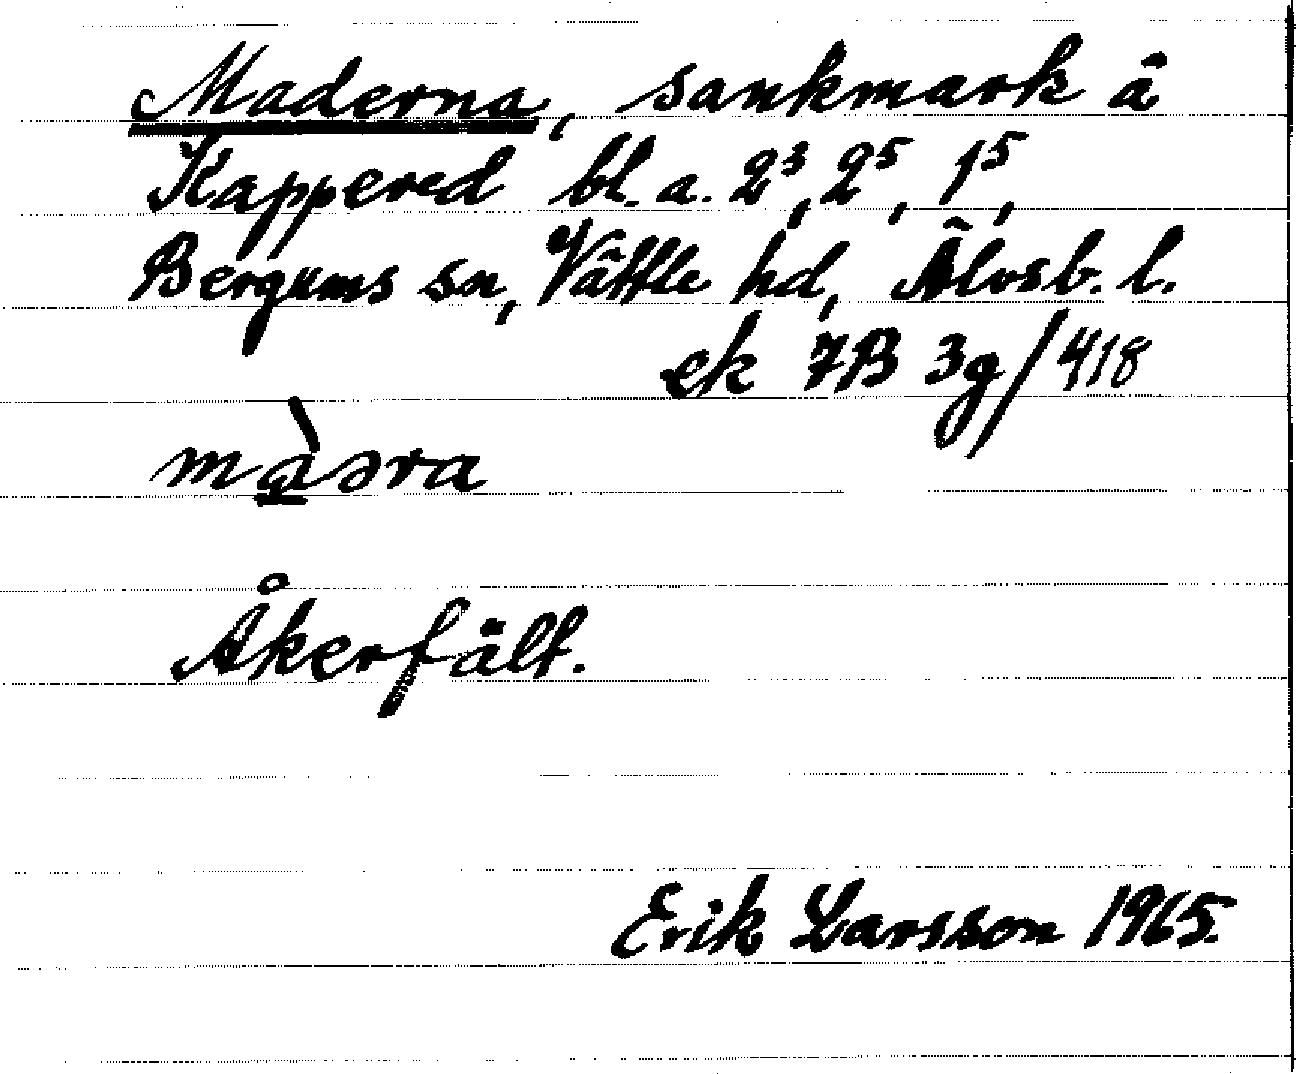 Maderna, sankmark å
Kappered bl. a. 2³, 2⁵, 1⁵,
Bergums sn, Vättle hd, Älvsb. l.
ek 7B 3g/418
mà̱əra
Åkerfält.
Erik Larsson 1965.